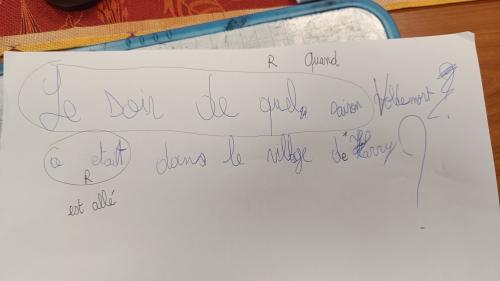 R quand
Le soir de quel saison Voldemort ?
a était dans le village de Harry ?
R
est allé